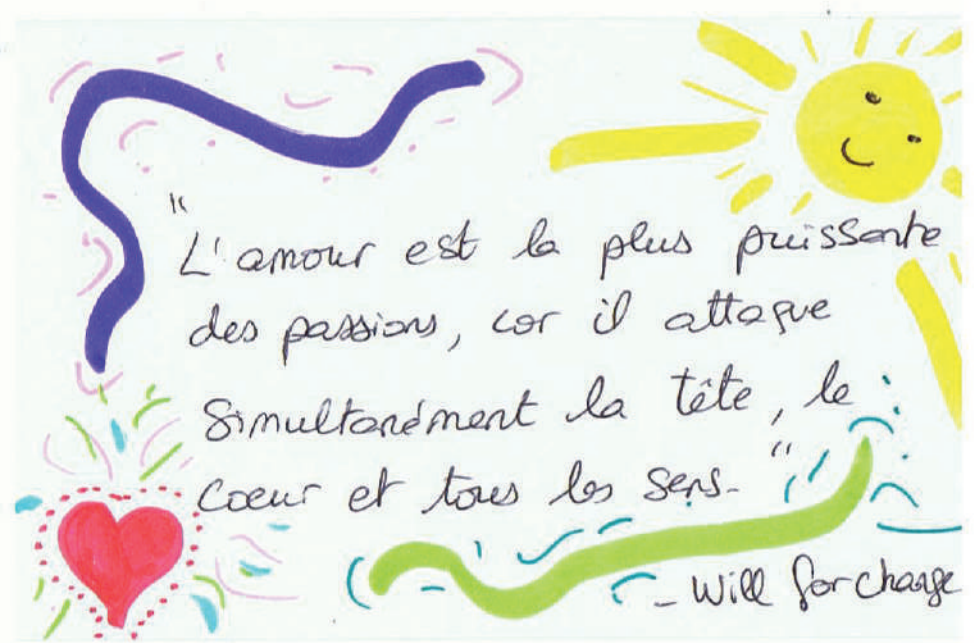 "L'amour est la plus puissante
des passions, car il attaque
simultanément la tête, le
coeur et tous les sens."
- Will for change